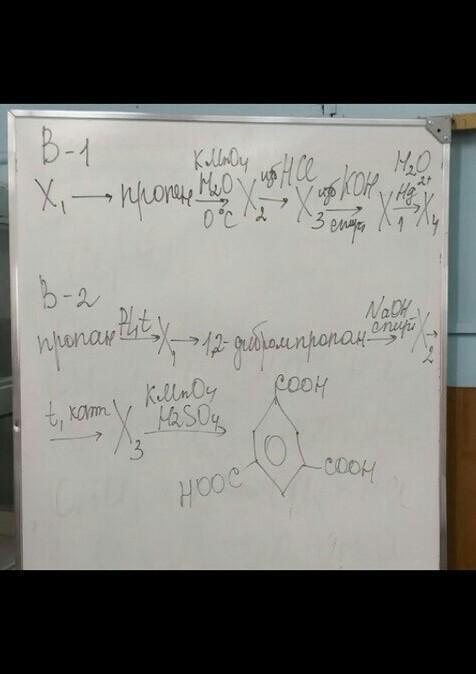 В-1
X₁ → пропен KMnO₄ H₂O 0°C → X₂ изб HCl → X₃ изб KOH спирт → X₁ H₂O Hg²⁺ → X₄
В-2
пропан Pt, t → X₁ → 1,2-дибромпропан NaOH спирт → X₂ →
t, кат → X₃ KMnO₄ H₂SO₄ →
COOH
HOOC COOH